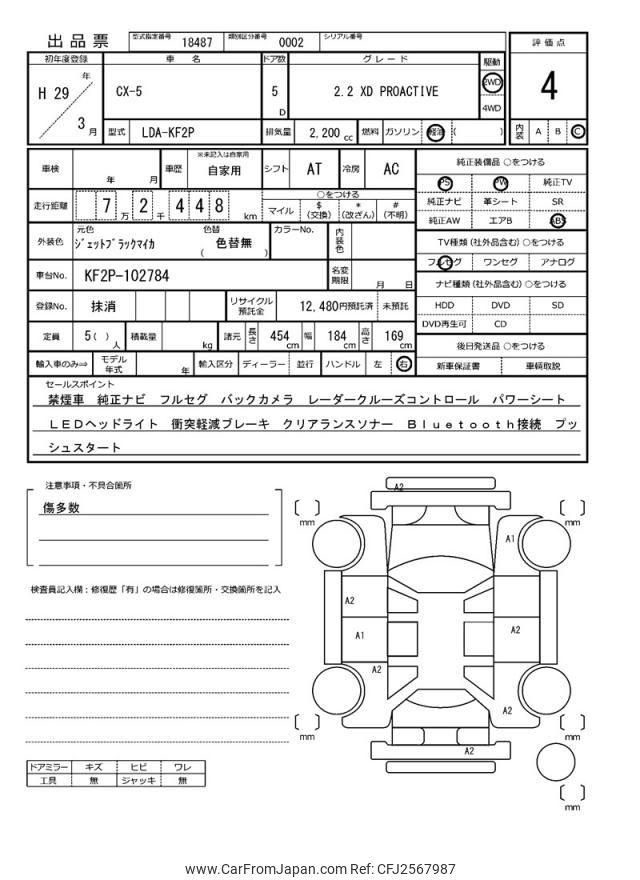 出品票 型式指定番号 18487 類別区分番号 0002 シリアル番号 評価点
初年度登録 車名 ドア数 グレード 駆動
H 29 年 CX-5 5 D 2.2 XD PROACTIVE 2WD 4WD 4
3 月 型式 LDA-KF2P 排気量 2,200 cc 燃料 ガソリン 軽油 ( ) 内装 A B C
車検 年 月 車歴 ※未記入は自家用 自家用 シフト AT 冷房 AC 純正装備品 ○をつける
PS PW 純正TV
走行距離 7 万 2 千 4 4 8 km ○をつける 純正ナビ 革シート SR
マイル $ (交換) * (改ざん) # (不明) 純正AW エアB ABS
外装色 元色 ジェットブラックマイカ 色替 ( 色替無 ) カラーNo. 内装色 TV種類 (社外品含む) ○をつける
フルセグ ワンセグ アナログ
車台No. KF2P-102784 名変期限 月 日 ナビ種類 (社外品含む) ○をつける
登録No. 抹消 リサイクル預託金 12,480円預託済 未預託 HDD DVD SD
DVD再生可 CD
定員 5( ) 人 積載量 kg 諸元 長さ 454 cm 幅 184 cm 高さ 169 cm 後日発送品 ○をつける
輸入車のみ⇒ モデル年式 年 輸入区分 ディーラー 並行 ハンドル 左 右 新車保証書 車輌取説
セールスポイント
禁煙車 純正ナビ フルセグ バックカメラ レーダークルーズコントロール パワーシート
LEDヘッドライト 衝突軽減ブレーキ クリアランスソナー Bluetooth接続 プッ
シュスタート
注意事項・不具合箇所
傷多数
検査員記入欄：修復歴「有」の場合は修復箇所・交換箇所を記入
A2
mm mm
A1
A2
A1 A2
A2
A2
mm mm
A2
mm
ドアミラー キズ ヒビ ワレ
工具 無 ジャッキ 無
www.CarFromJapan.com Ref: CFJ2567987